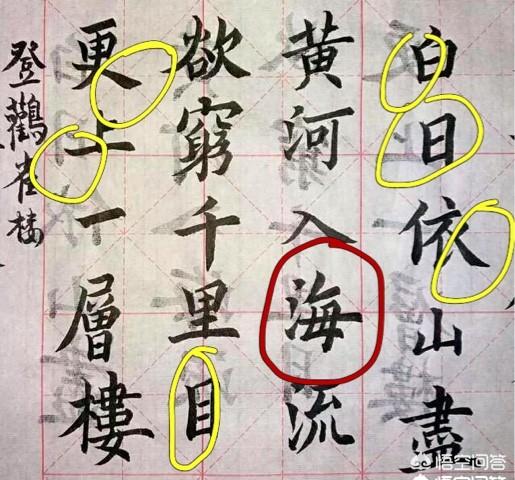 白日依山盡
黃河入海流
欲窮千里目
更上一層樓
登鸛雀楼
悟空问答
悟空问答